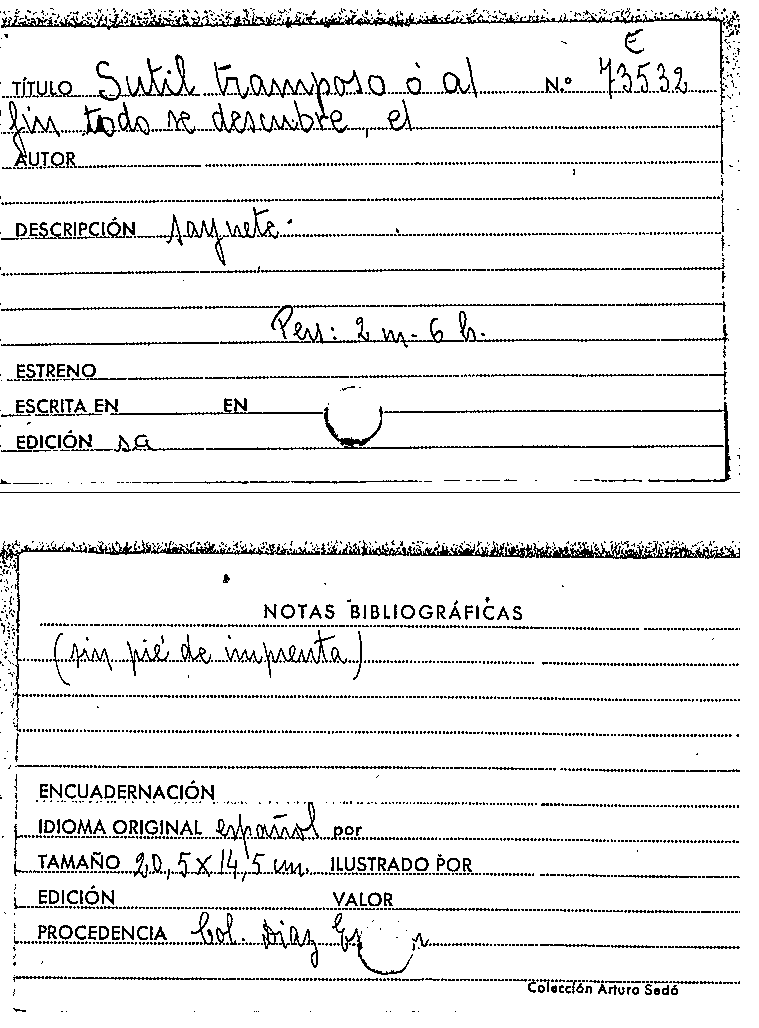 E
TÍTULO Sutil tramposo ó al N.º 73532
fin todo se descubre, el
AUTOR
DESCRIPCIÓN saynete.
Pers: 2 m. 6 h.
ESTRENO
ESCRITA EN EN
EDICIÓN sa
NOTAS BIBLIOGRÁFICAS
(sin pié de imprenta)
ENCUADERNACIÓN
IDIOMA ORIGINAL español por
TAMAÑO 20,5 x 14,5 cm. ILUSTRADO POR
EDICIÓN VALOR
PROCEDENCIA Col. Diaz
Colección Arturo Sedó